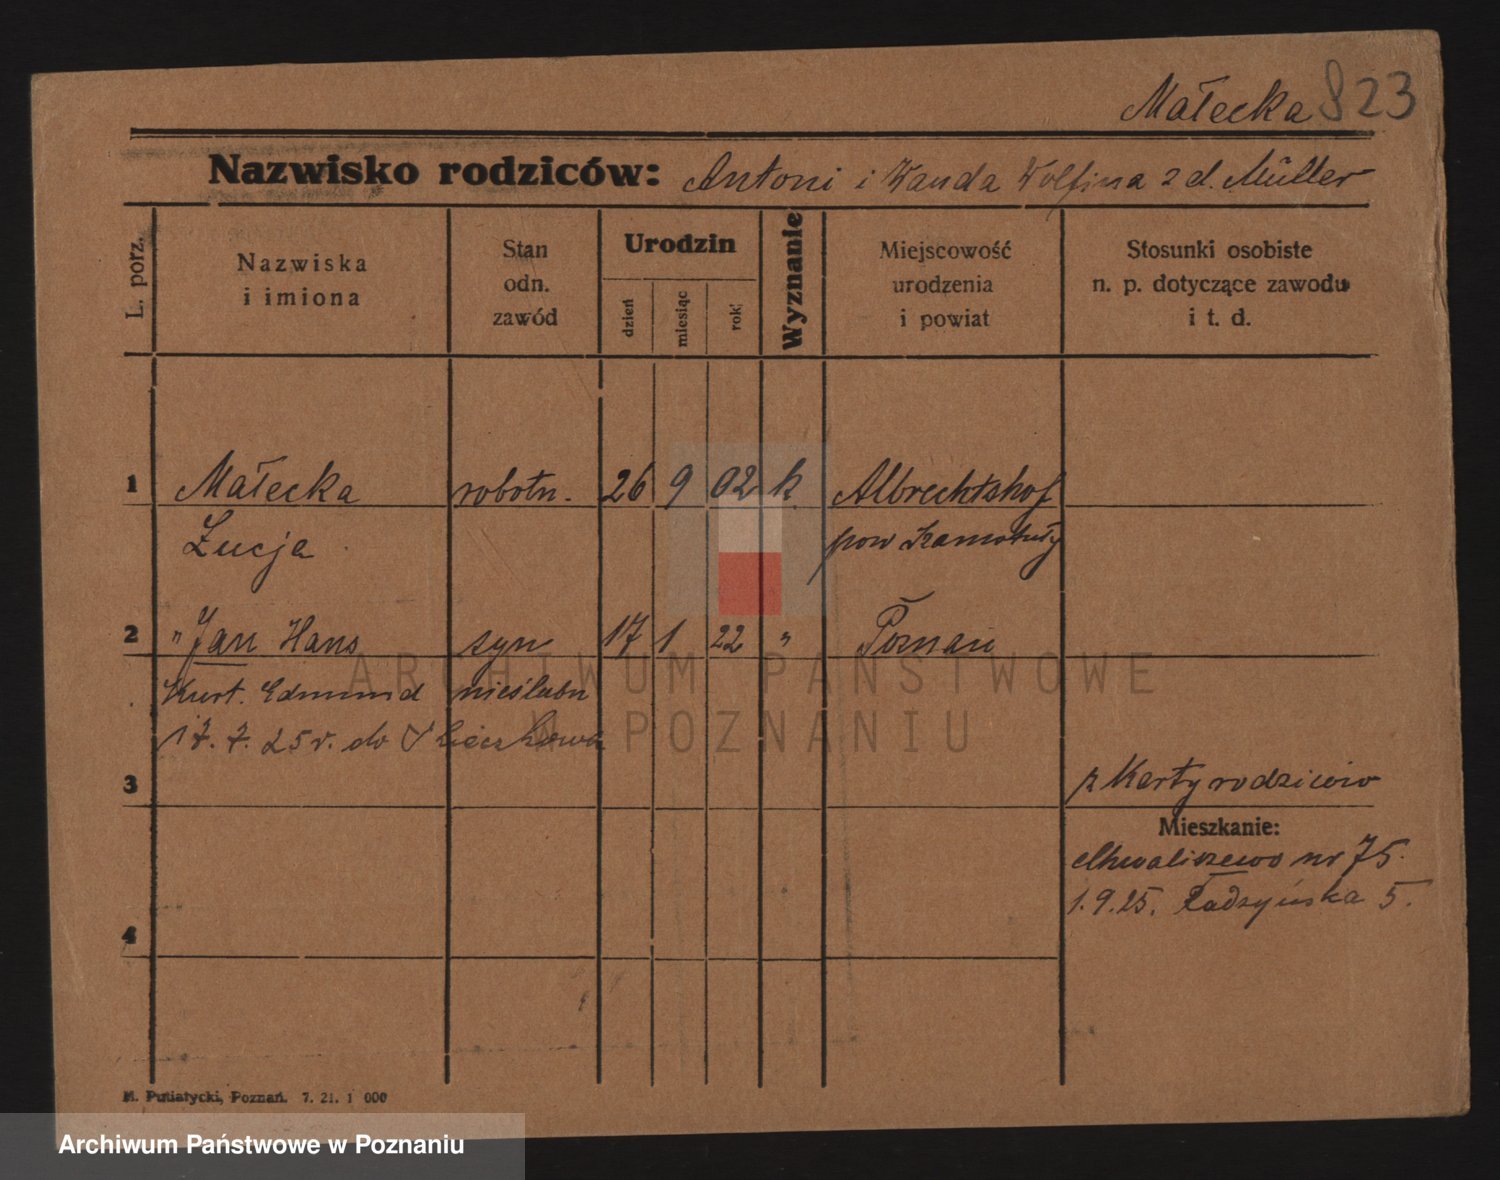 Małecka 823
Nazwisko rodziców: Antoni i Wanda Wolfina z d. Müller
L. porz.
Nazwiska i imiona
Stan odn. zawód
Urodzin
dzień
miesiąc
rok
Wyznanie
Miejscowość urodzenia i powiat
Stosunki osobiste n. p. dotyczące zawodu i t. d.
1 Małecka robotn. 26 9 02 k. Albrechtshof
Łucja pow Szamotuły
2 " Jan Hans syn 17 1 22 " Poznań
Kurt. Edmund nieślubn
17. 7. 25 r. do
3 z Karty rodziców
Mieszkanie:
Chwaliszewo nr 75.
1.9.25. Radzyńska 5.
4
M. Putiatycki, Poznań. 7. 21. 1 000
ARCHIWUM PAŃSTWOWE
W POZNANIU
Archiwum Państwowe w Poznaniu